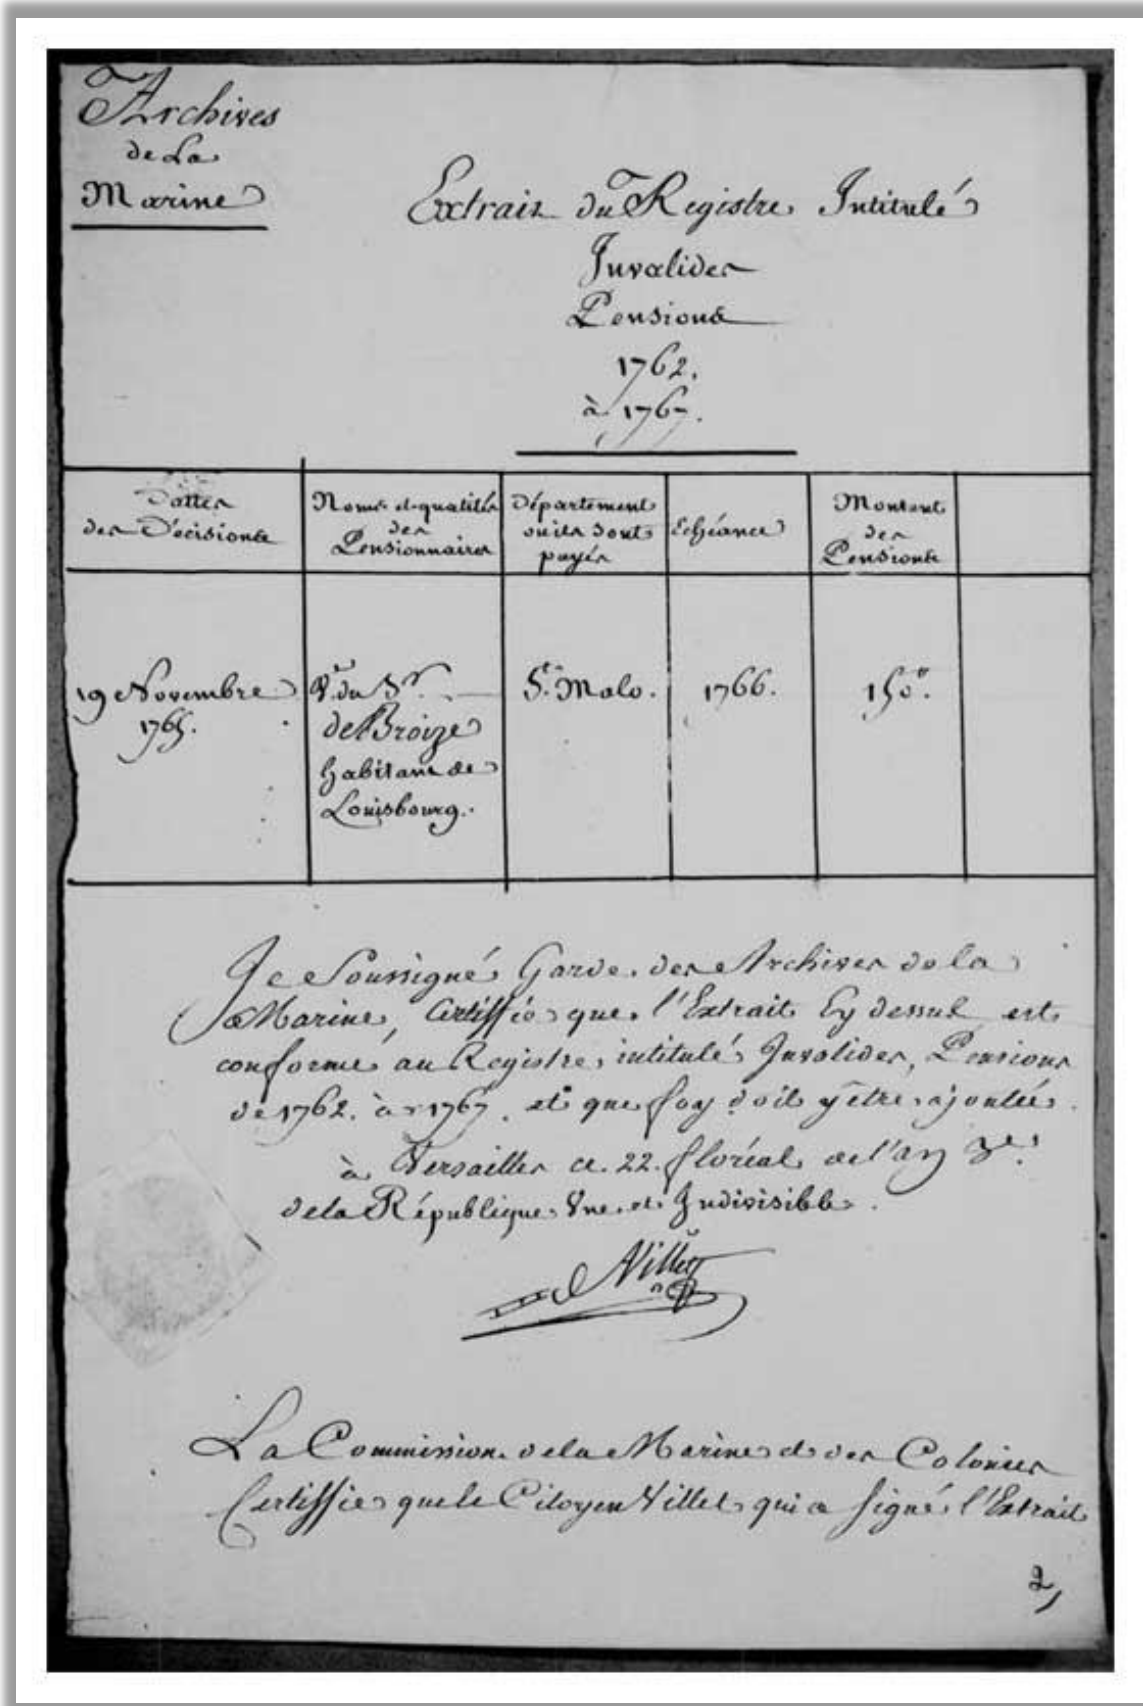 Archives
de La
Marine
Extrait du Registre Intitulé
Invalides
Pensions
1762.
à 1767.
Dattes
des Décisions
Noms et qualités
des
Pensionnaires
Département
ou ils sont
payés
Echéance
Montant
des
Pensions
19 Novembre
1765.
Ve. du Sr.
de Broize
habitant de
Louisbourg.
St. Malo.
1766.
150
Je Soussigné Garde des Archives de la
Marine, Certiffie que l'Extrait Cy dessus est
conforme au Registre intitulé Invalides, Pensions
de 1762. à 1767. et que foy doit y être ajoutée.
à Versailles ce 22. floréal de l'an 3e.
de la République Une et Indivisible.
Villet
La Commission de la Marine et des Colonies
Certiffie que le Citoyen Villet qui a signé l'Extrait
2,